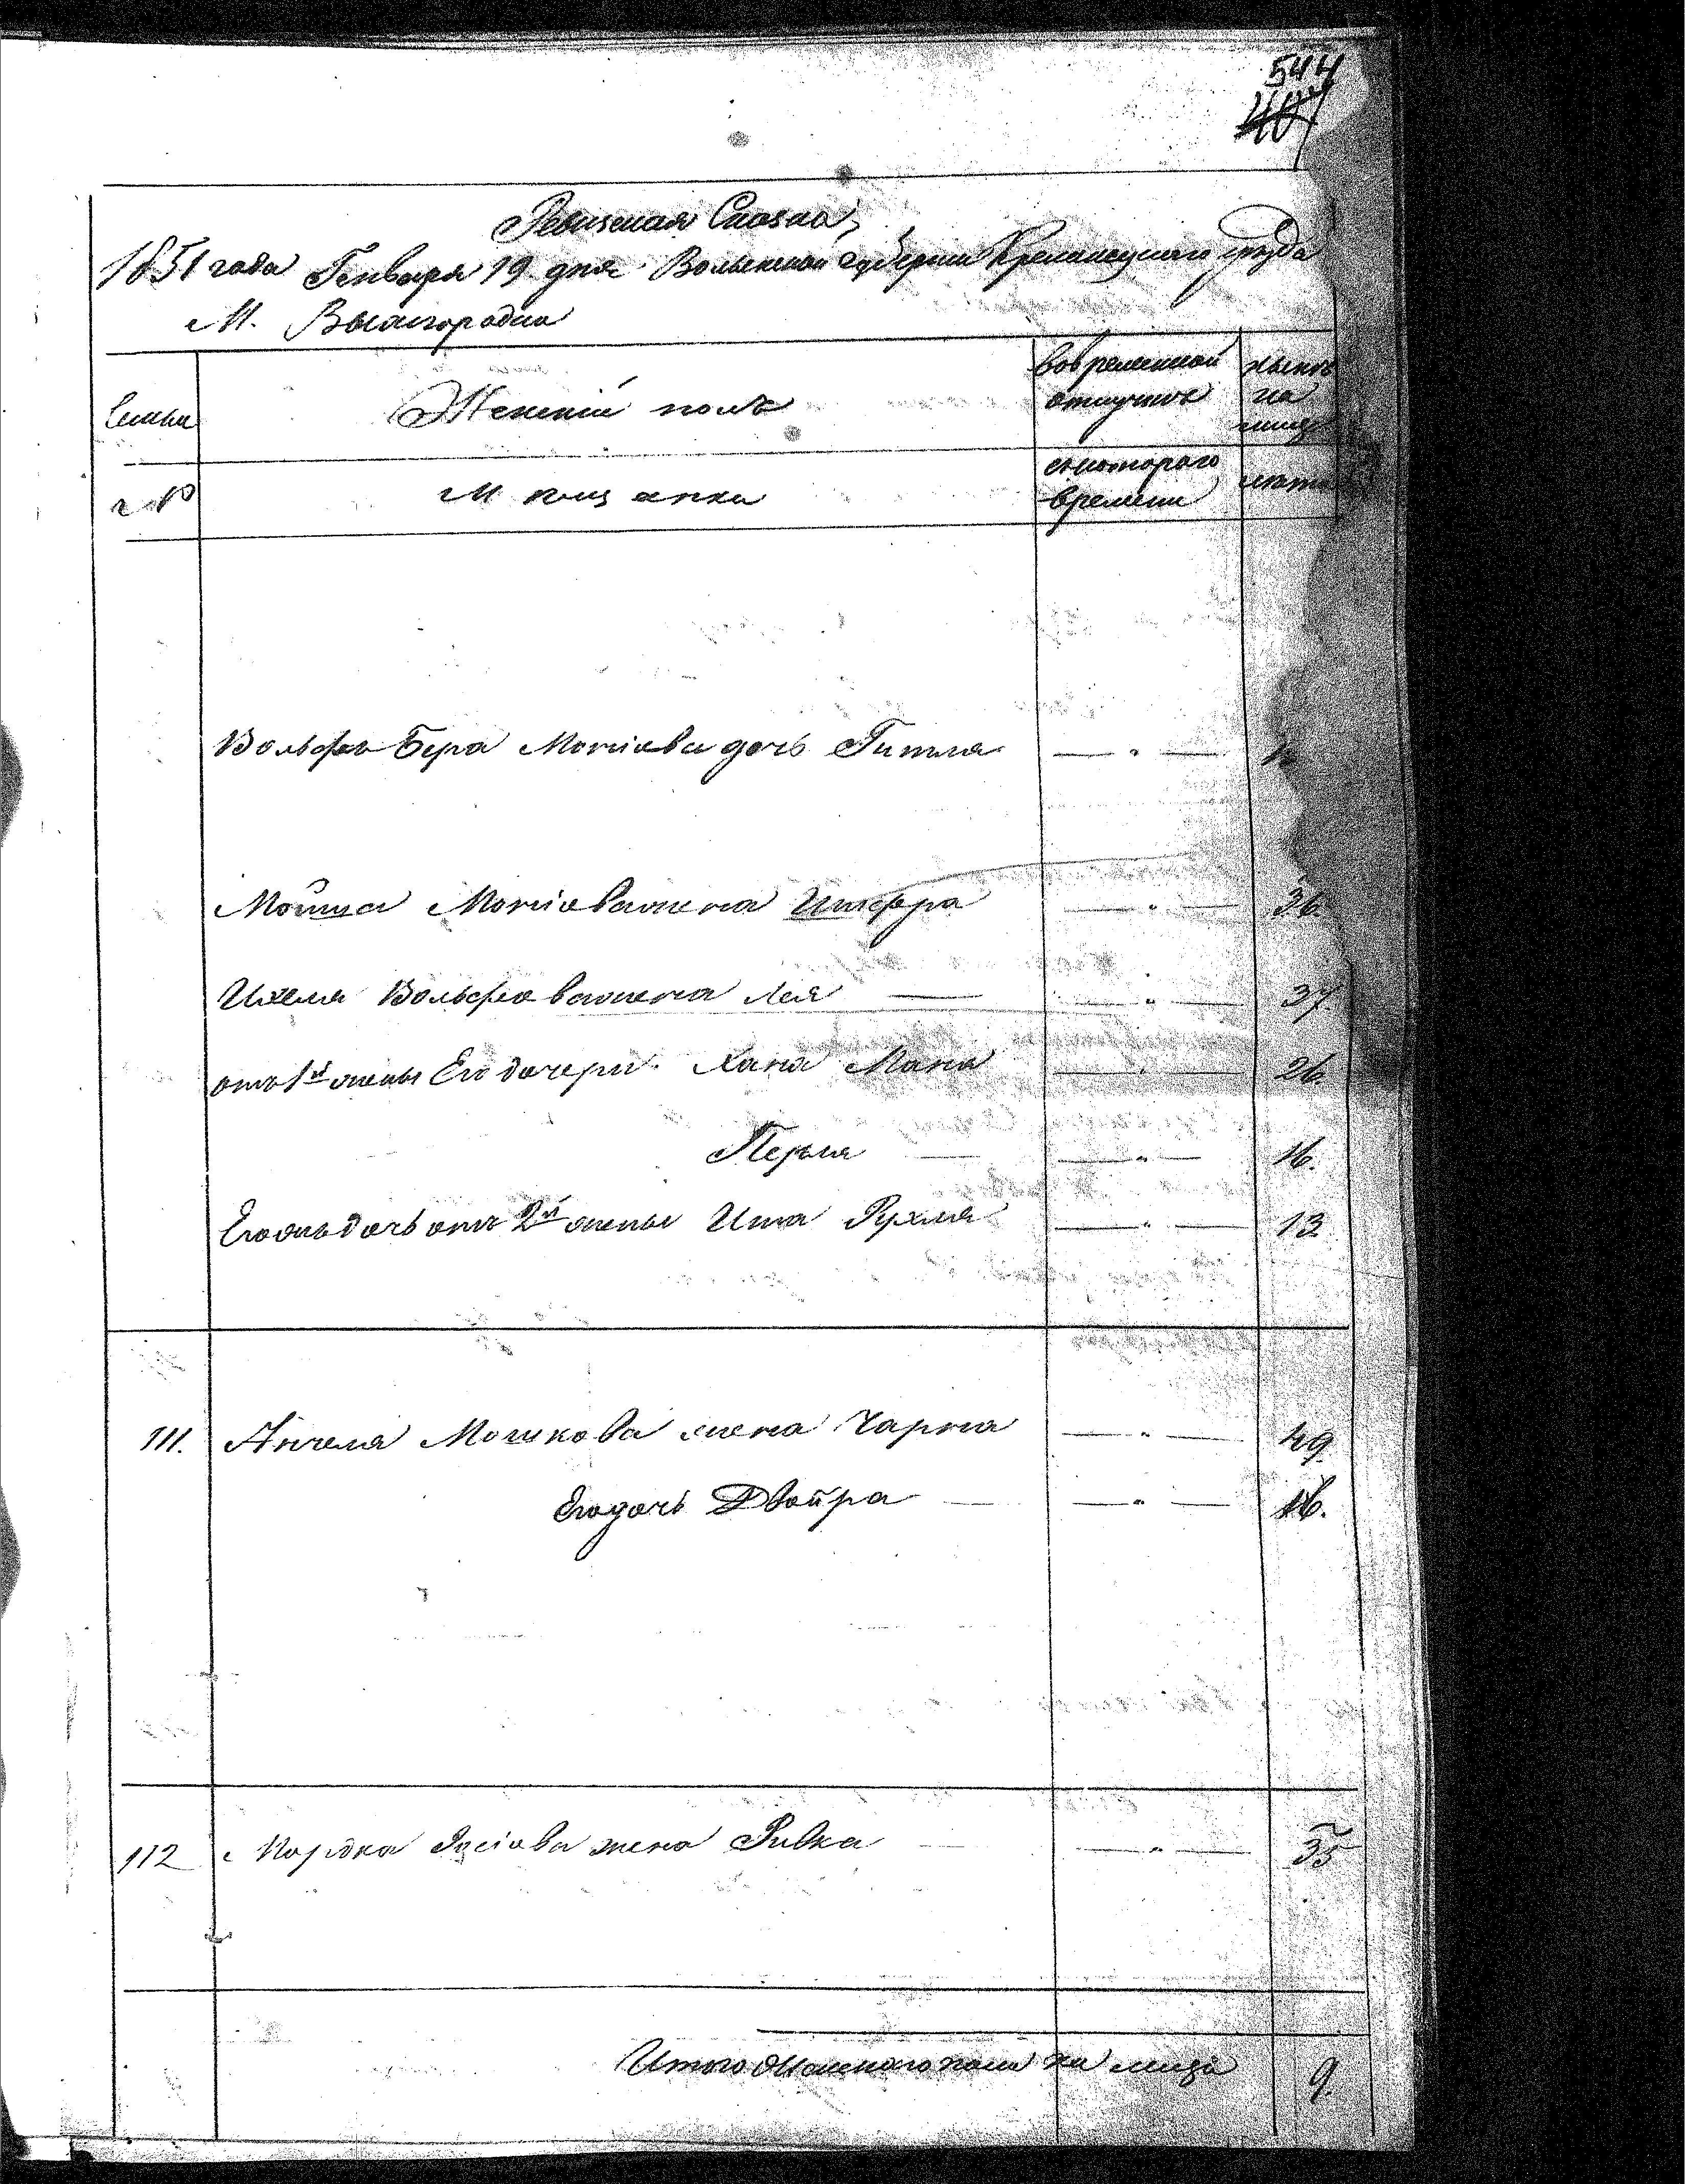 544
407
Ревизская Сказка,
1851 года Генваря 19 дня Волынской губерніи Кременецкаго уѣзда
М. Вышгородка
Семьи
Женскій полъ
Вовременной отлучкѣ
нынѣ на лицо
№
Мѣщанки
съ котораго времени
лѣта
Вольфъ Бера Мошіова дочь Гитля — " —
Мошка Мошіова жена Шифра — " — 36.
Ихеля Вольфова жена Лея — " — 37.
отъ 1й жены Его дочери Хана Мана — " — 26.
Перля — " — 16.
Его жъ дочь отъ 2й жены Ита Рухля — " — 13
111. Анчеля Мошкова жена Чарна — " — 49
Его дочь Двойра — " — 16.
112 Мордка жена Ривка — " — 35
Итого Женскаго пола на лицо 9.